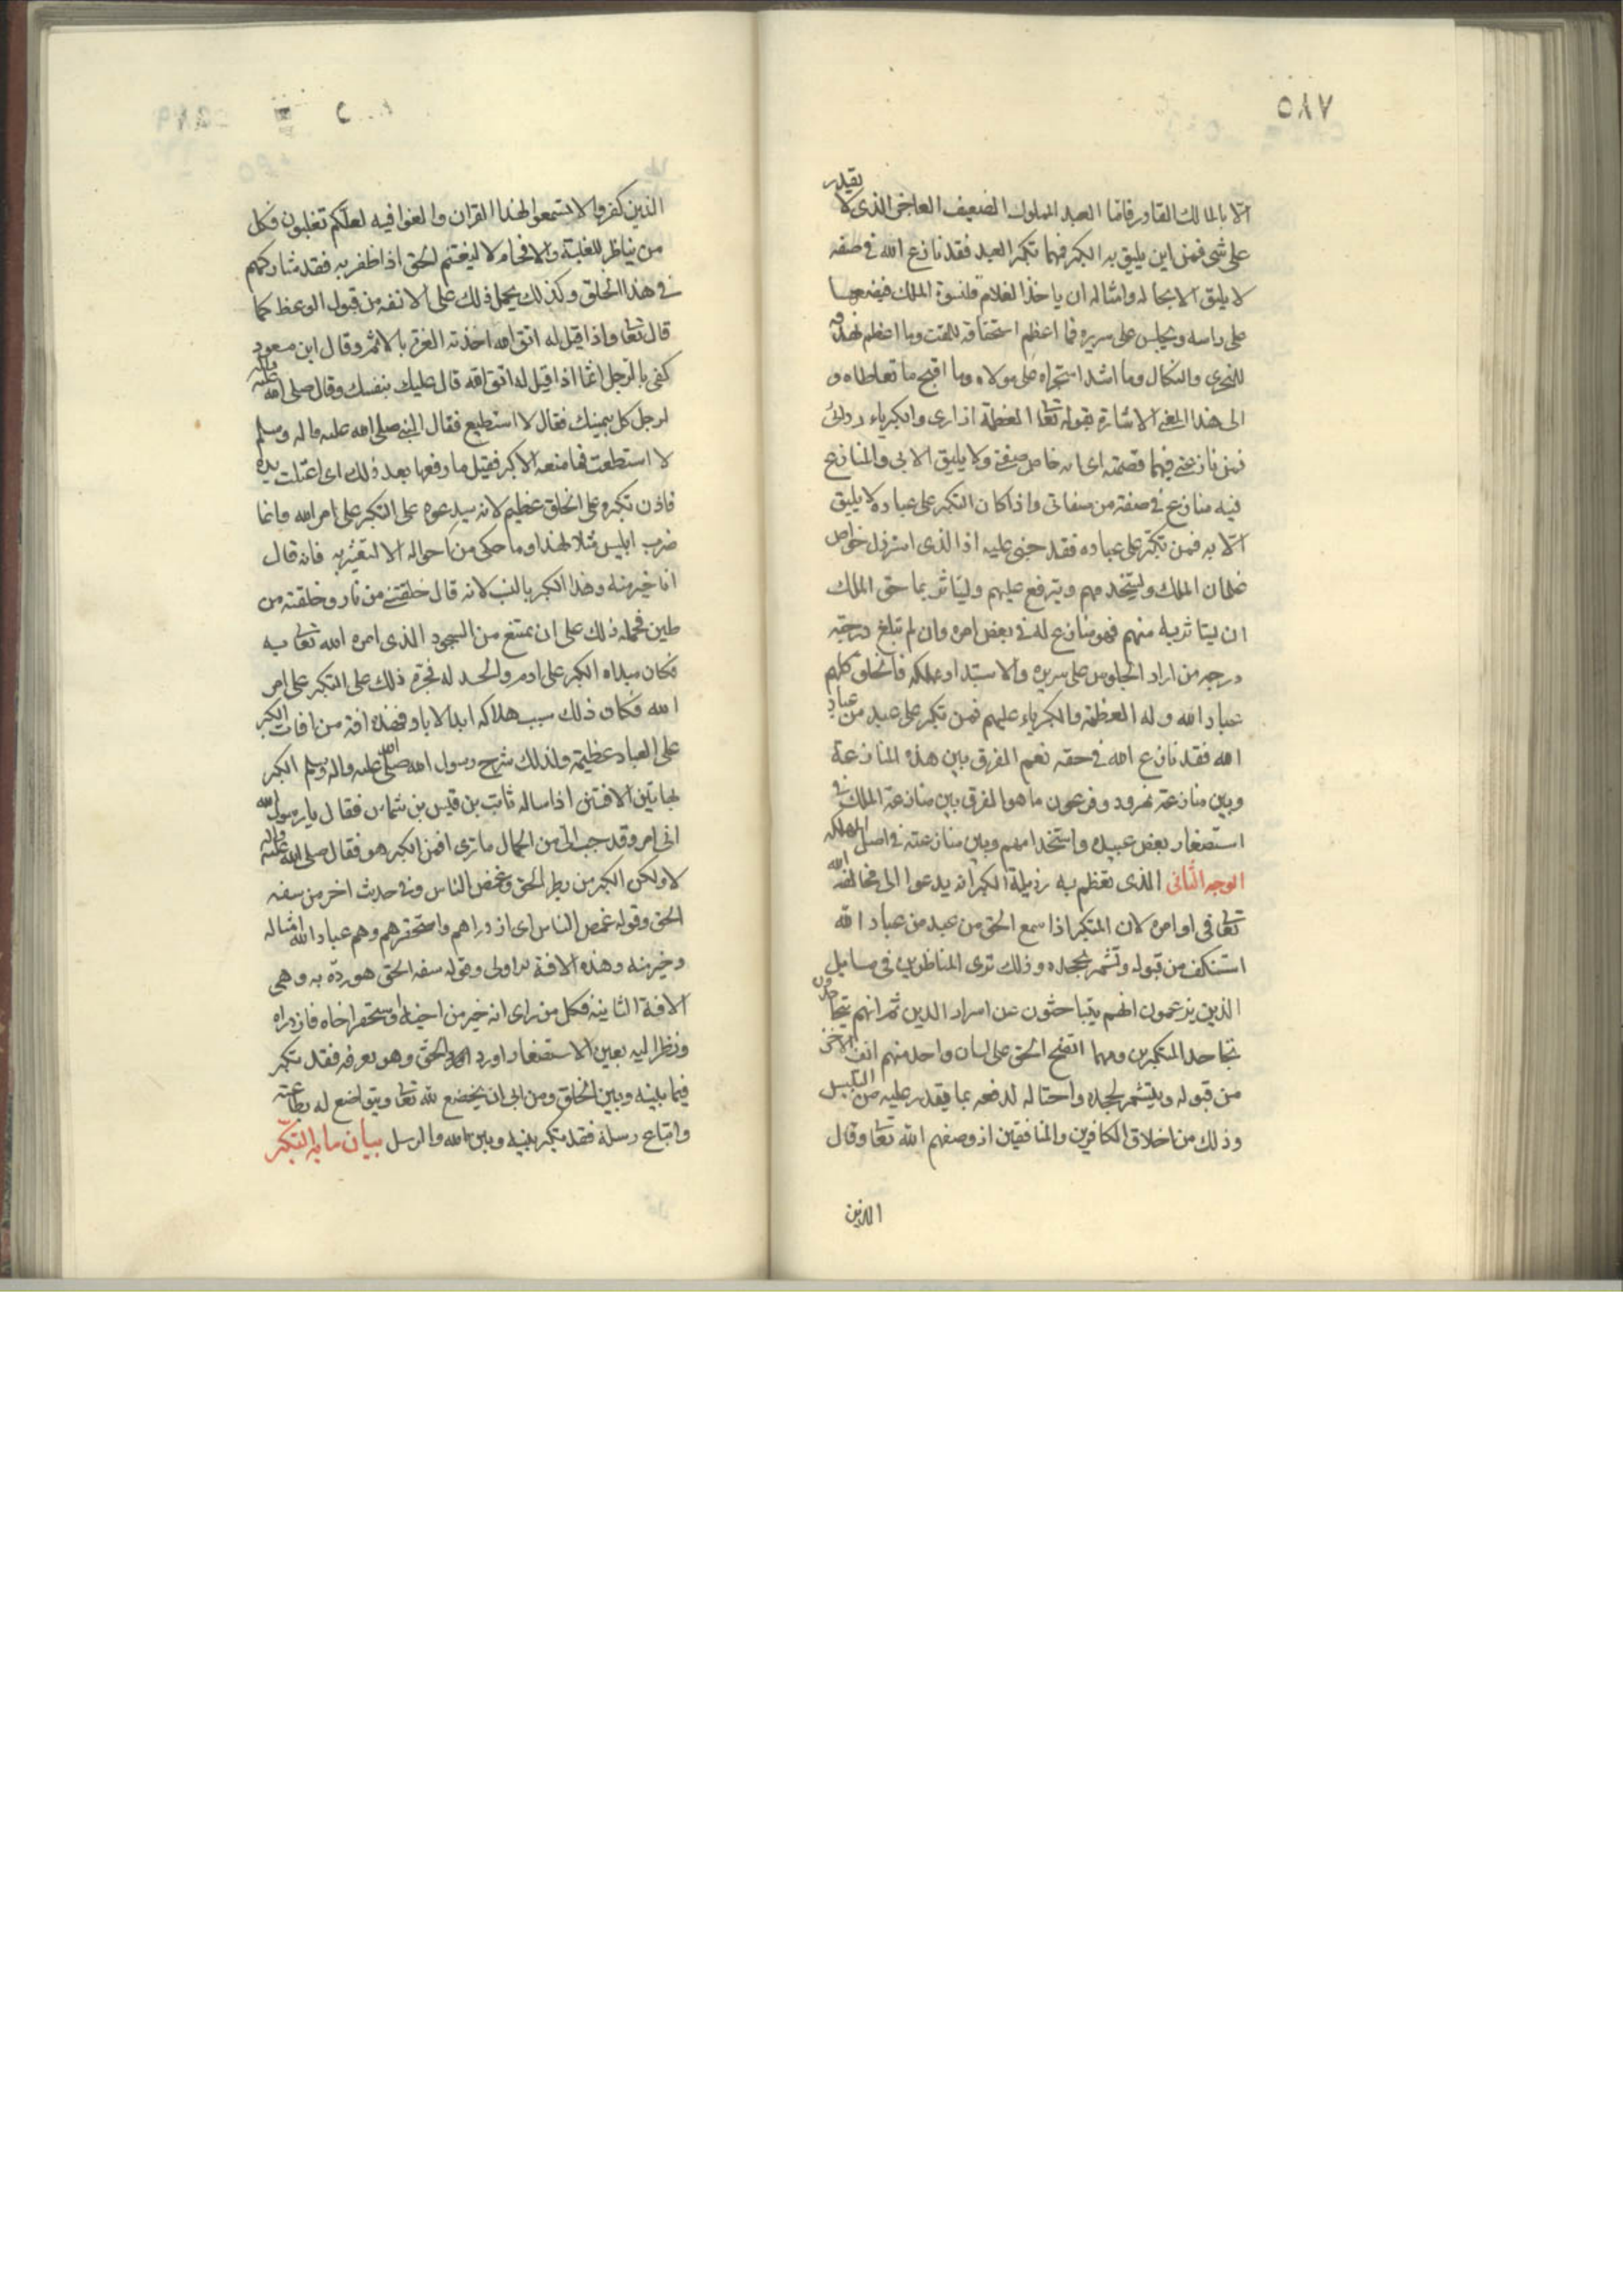 ٥٨٧
الا بالمالك القادر فاما العبد المملوك الضعيف العاجز الذى لا يقدر
على شى فمن اين يليق به الكبر فمهما تكبر العبد فقد نازع الله فى صفة
لا يليق الا بجاله وامثاله ان ياخذ الغلام قلنسوة الملك فيضعها
على راسه ويجلس على سريره فما اعظم استحقاقه للمقت وما اعظم تهدفه
للخزى والنكال وما اشد استجراه على مولاه وما اقبح ما تعاطاه و
الى هذا المعنى الاشارة بقوله تعا العظمة ازارى والكبرياء ردائى
فمن نازعنى فيهما قصمته اى انه خاص صفتى ولا يليق الا بى والمنازع
فيه منازع فى صفة من صفاتى واذا كان التكبر على عباده لا يليق
الا به فمن تكبر على عباده فقد جنى عليه اذ الذى استرذل خواص
غلمان الملك وليستخدمهم ويترفع عليهم وليتاثر بما حق الملك
ان ليتاثر به منهم فهو منازع له فى بعض امره وان لم تبلغ درجته
درجه من اراد الجلوس على سريره والاستبداد بملكه فالخلق كلهم
عباد الله وله العظمة والكبرياء عليهم فمن تكبر على عبد من عباد
الله فقد نازع الله فى حقه نعم الفرق بين هذه المنازعة
وبين منازعة نمرود وفرعون ما هو الفرق بين منازعة الملك فى
استصغار بعض عبيده واستخدامهم وبين منازعته فى اصل المملكه
الوجه الثانى الذى تعظم به رذيلة الكبر انه يدعوا الى مخالفة الله
تعا فى اوامره لان المتكبر اذا سمع الحق من عبد من عباد الله
استنكف من قبوله وتشمر لجحده وذلك ترى المناظرين فى مسايل
الذين يزعمون انهم يتباحثون عن اسرار الدين ثم انهم يتجاحدون
تجاحد المتكبرين ومهما اتضح الحق على لسان واحد منهم انف الاخر
من قبوله ويتشمر لجحده واحتاله لدفعه بما يقدر عليه من التلبيس
وذلك من اخلاق الكافرين والمنافقين اذ وصفهم الله تعا وقال
الذين
الذين كفروا لا تسمعوا لهذا القران والغوا فيه لعلكم تغلبون فكل
من يناظر للغلبة والافحام لا ليغتنم الحق اذا ظفر به فقد شاركهم
فى هذا الخلق وكذلك يحمل ذلك على الانفه من قبول الوعظ كما
قال تعا واذا قيل له اتق الله اخذته العزة بالاثم وقال ابن مسعود
كفى بالرجل اثما اذا قيل له اتق الله قال عليك بنفسك وقال صلى الله عليه واله
لرجل كل بيمينك فقال لا استطيع فقال النبى صلى الله عليه واله وسلم
لا استطعت فما منعه الا كبر فقيل ما رفعها بعد ذلك اى اعتلت يده
فاذن تكبره على الخلق عظيم لانه سيدعوه على التكبر على امر الله وانما
ضرب ابليس مثلا لهذا وما حكى من احواله الا لتعتبر به فانه قال
انا خير منه وهذا الكبر بالنسب لانه قال خلقتنى من نار وخلقته من
طين فحمله ذلك على ان يمتنع من السجود الذى امره الله تعا به
فكان مبداه الكبر على ادم والحسد له فجره ذلك على التكبر على امر
الله فكان ذلك سبب هلاكه ابد الاباد فهذه افة من افات الكبر
على العباد عظيمة ولذلك شرح رسول الله صلى الله عليه واله وسلم الكبر
بهاتين الافتين اذ ساله ثابت بن قيس بن شماس فقال يا رسول الله
انى امر وقد حبب الى من الجمال ما ترى افمن الكبر هو فقال صلى الله عليه واله
لا ولكن الكبر من بطر الحق وغمص الناس وفى حديث اخر من سفه
الحق وقوله غمص الناس اى ازدراهم واستحقرهم وهم عباد الله امثاله
وخير منه وهذه الافة الاولى وقوله سفه الحق هو رده به وهى
الافة الثانية فكل من راى انه خير من اخيه واستحقر اخاه فازدراه
ونظر اليه بعين الاستصغار او رد الحق وهو يعرفه فقد تكبر
فيما بينه وبين الخلق ومن ابى ان يخضع لله تعا ويتواضع له بطاعته
واتباع رسله فقد تكبر بينه وبين الله والرسل بيان ما به التكبر